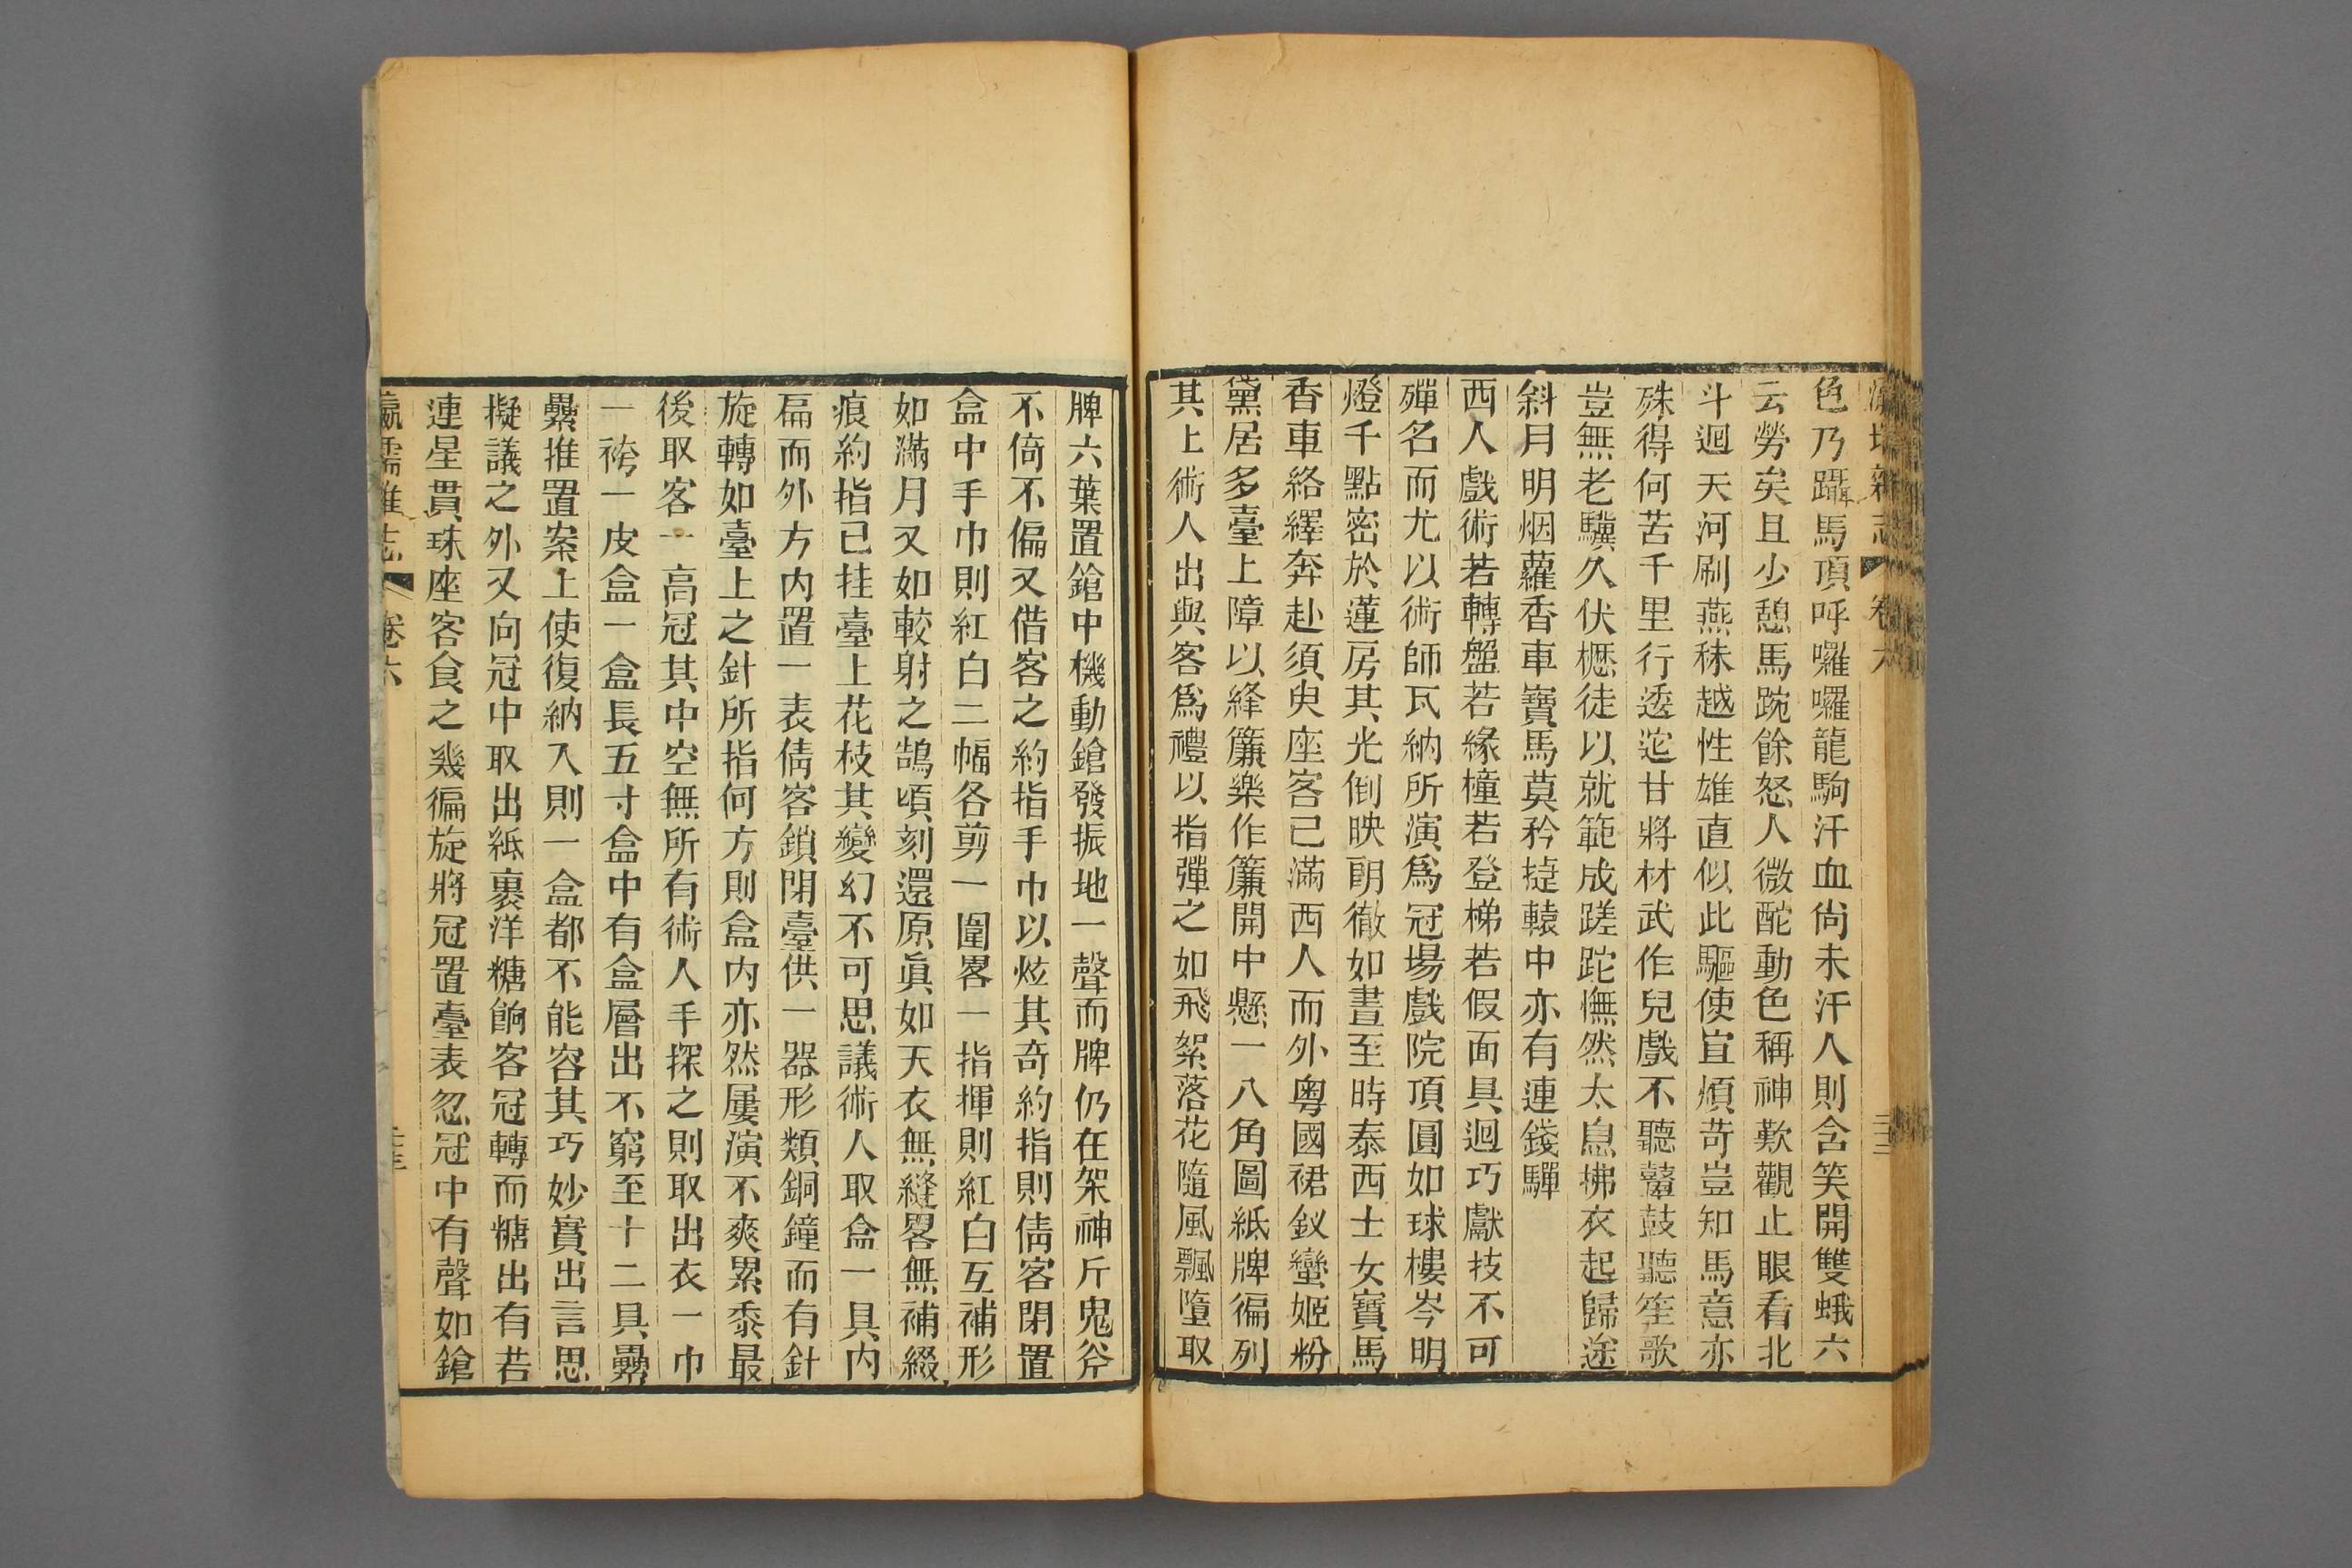 卷六
色乃躡馬頂呼囉囉龍駒汗血尚未汗人則含笑開雙蛾六
云勞矣且少憩馬踠餘怒人微酡動色稱神歎觀止眼看北
斗迴天河刷燕秣越性雄直似此驅使宜煩苛豈知馬意亦
殊得何苦千里行逶迤甘將材武作兒戲不聽鼙鼓聽笙歌
豈無老驥久伏櫪徒以就範成蹉跎憮然太息拂衣起歸途
斜月明烟蘿香車寶馬莫矜㨗轅中亦有連錢驒
西人戲術若轉盤若緣橦若登梯若假面具迴巧獻技不可
殫名而尤以術師瓦納所演爲冠場戲院頂圓如球樓岑明
燈千點密於蓮房其光倒映朗徹如晝至時泰西士女寶馬
香車絡繹奔赴須臾座客已滿西人而外粵國裙釵蠻姬粉
黛居多臺上障以絳簾樂作簾開中懸一八角圖紙牌徧列
其上術人出與客爲禮以指彈之如飛絮落花隨風飄墮取
牌六葉置鎗中機動鎗發振地一聲而牌仍在架神斤鬼斧
不倚不偏又借客之約指手巾以炫其奇約指則倩客閉置
盒中手巾則紅白二幅各剪一圍畧一指揮則紅白互補形
如滿月又如較射之鵠頃刻還原眞如天衣無縫畧無補綴
痕約指已挂臺上花枝其變幻不可思議術人取盒一具內
扁而外方內置一表倩客鎖閉臺供一器形類銅鐘而有針
旋轉如臺上之針所指何方則盒內亦然屢演不爽累黍最
後取客一高冠其中空無所有術人手探之則取出衣一巾
一袴一皮盒一盒長五寸盒中有盒層出不窮至十二具纍
纍推置案上使復納入則一盒都不能容其巧妙實出言思
擬議之外又向冠中取出紙裹洋糖餉客冠轉而糖出有若
連星貫珠座客食之幾徧旋將冠置臺表忽冠中有聲如鎗
瀛壖雜志 卷六